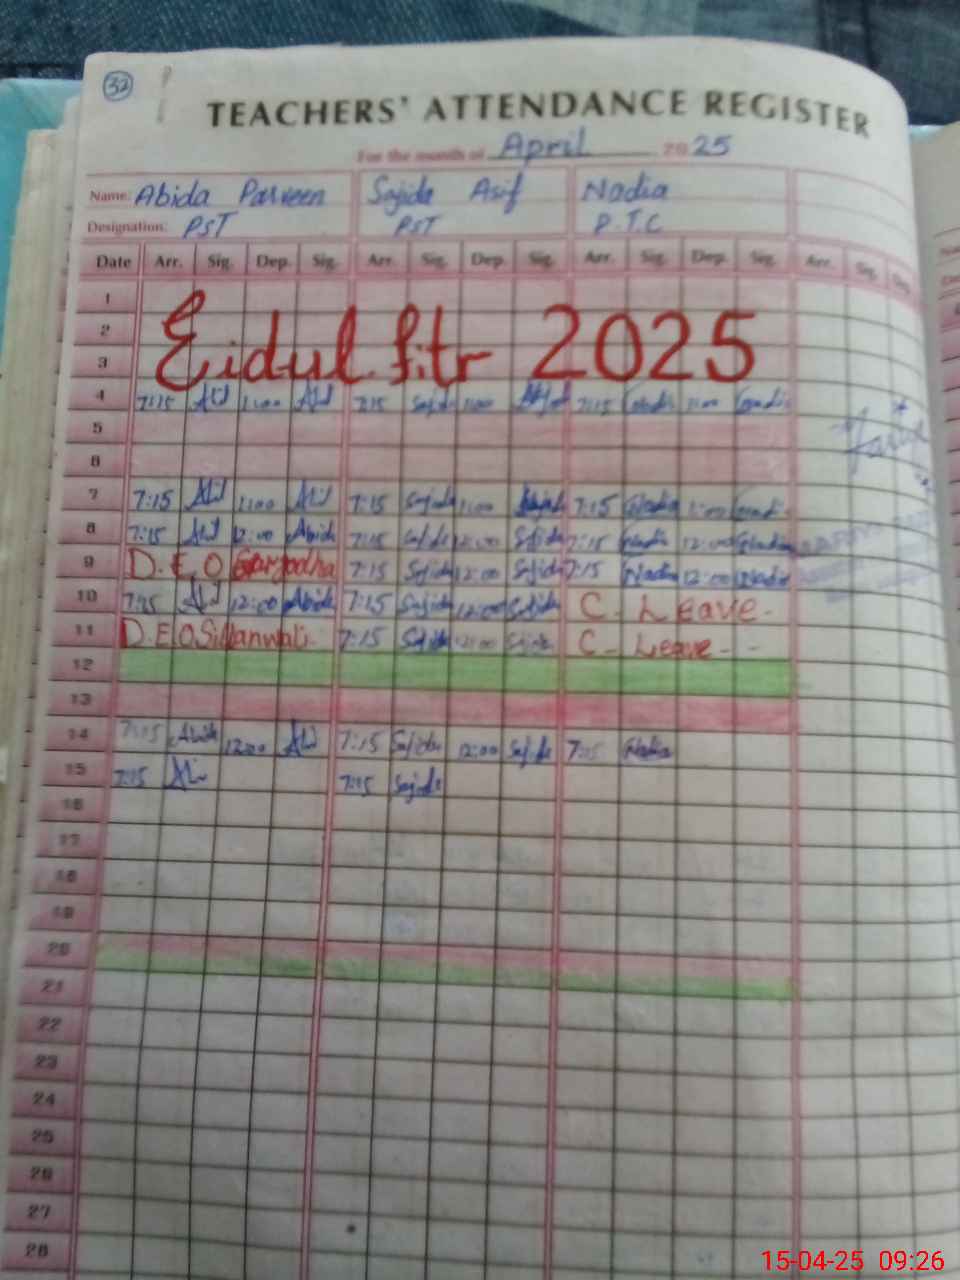 32
TEACHERS' ATTENDANCE REGISTER
For the month of April 2025
Name: Abida Parveen Sajida Asif Nadia
Designation: PST PST P.T.C
Date Arr. Sig. Dep. Sig. Arr. Sig. Dep. Sig. Arr. Sig. Dep. Sig. Arr. Sig. Dep.
1
2 Eidul fitr 2025
3
4 7:15 11:00 7:15 Sajida 11:00 7:15 Nadia 11:00 Nadia
5
6
7 7:15 11:00 7:15 Sajida 11:00 7:15 Nadia 11:00 Nadia
8 7:15 12:00 Abida 7:15 Sajida 12:00 Sajida 7:15 Nadia 12:00 Nadia
9 D.E.O Sargodha 7:15 Sajida 12:00 Sajida 7:15 Nadia 12:00 Nadia
10 7:15 12:00 Abida 7:15 Sajida 12:00 Sajida C - Leave -
11 D.E.O Sillanwali 7:15 Sajida 12:00 Sajida C - Leave - -
12
13
14 7:15 Abida 12:00 7:15 Sajida 12:00 Sajida 7:15 Nadia
15 7:15 7:15 Sajida
16
17
18
19
20
21
22
23
24
25
26
27
28
15-04-25 09:26